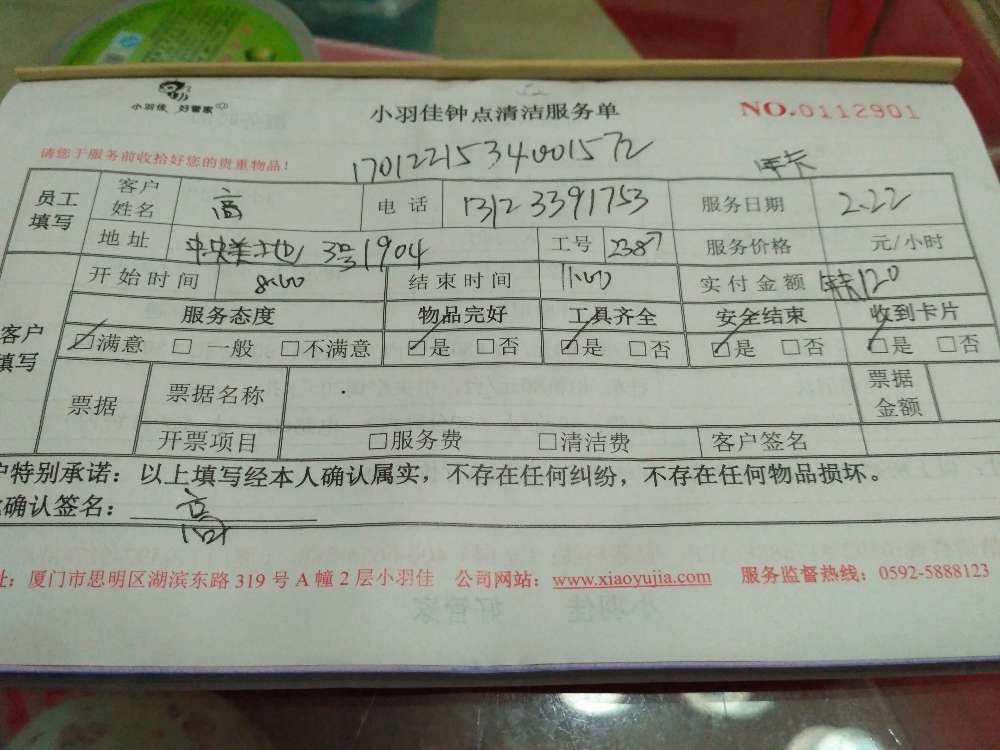 小羽佳 好管家
小羽佳钟点清洁服务单
NO.0112901
请您于服务前收拾好您的贵重物品！
1701221534001572
年卡
员工填写 客户姓名 高 电话 13123391753 服务日期 2.22
地址 中央美地 3号1904 工号 2387 服务价格 元/小时
客户填写 开始时间 8:00 结束时间 11:00 实付金额 年卡120
服务态度 物品完好 工具齐全 安全结束 收到卡片
☑满意 □一般 □不满意 ☑是 □否 ☑是 □否 ☑是 □否 ☑是 □否
票据 票据名称 票据金额
开票项目 □服务费 □清洁费 客户签名
户特别承诺：以上填写经本人确认属实，不存在任何纠纷，不存在任何物品损坏。
确认签名：高
址：厦门市思明区湖滨东路 319 号 A 幢 2 层小羽佳 公司网站：www.xiaoyujia.com 服务监督热线：0592-5888123